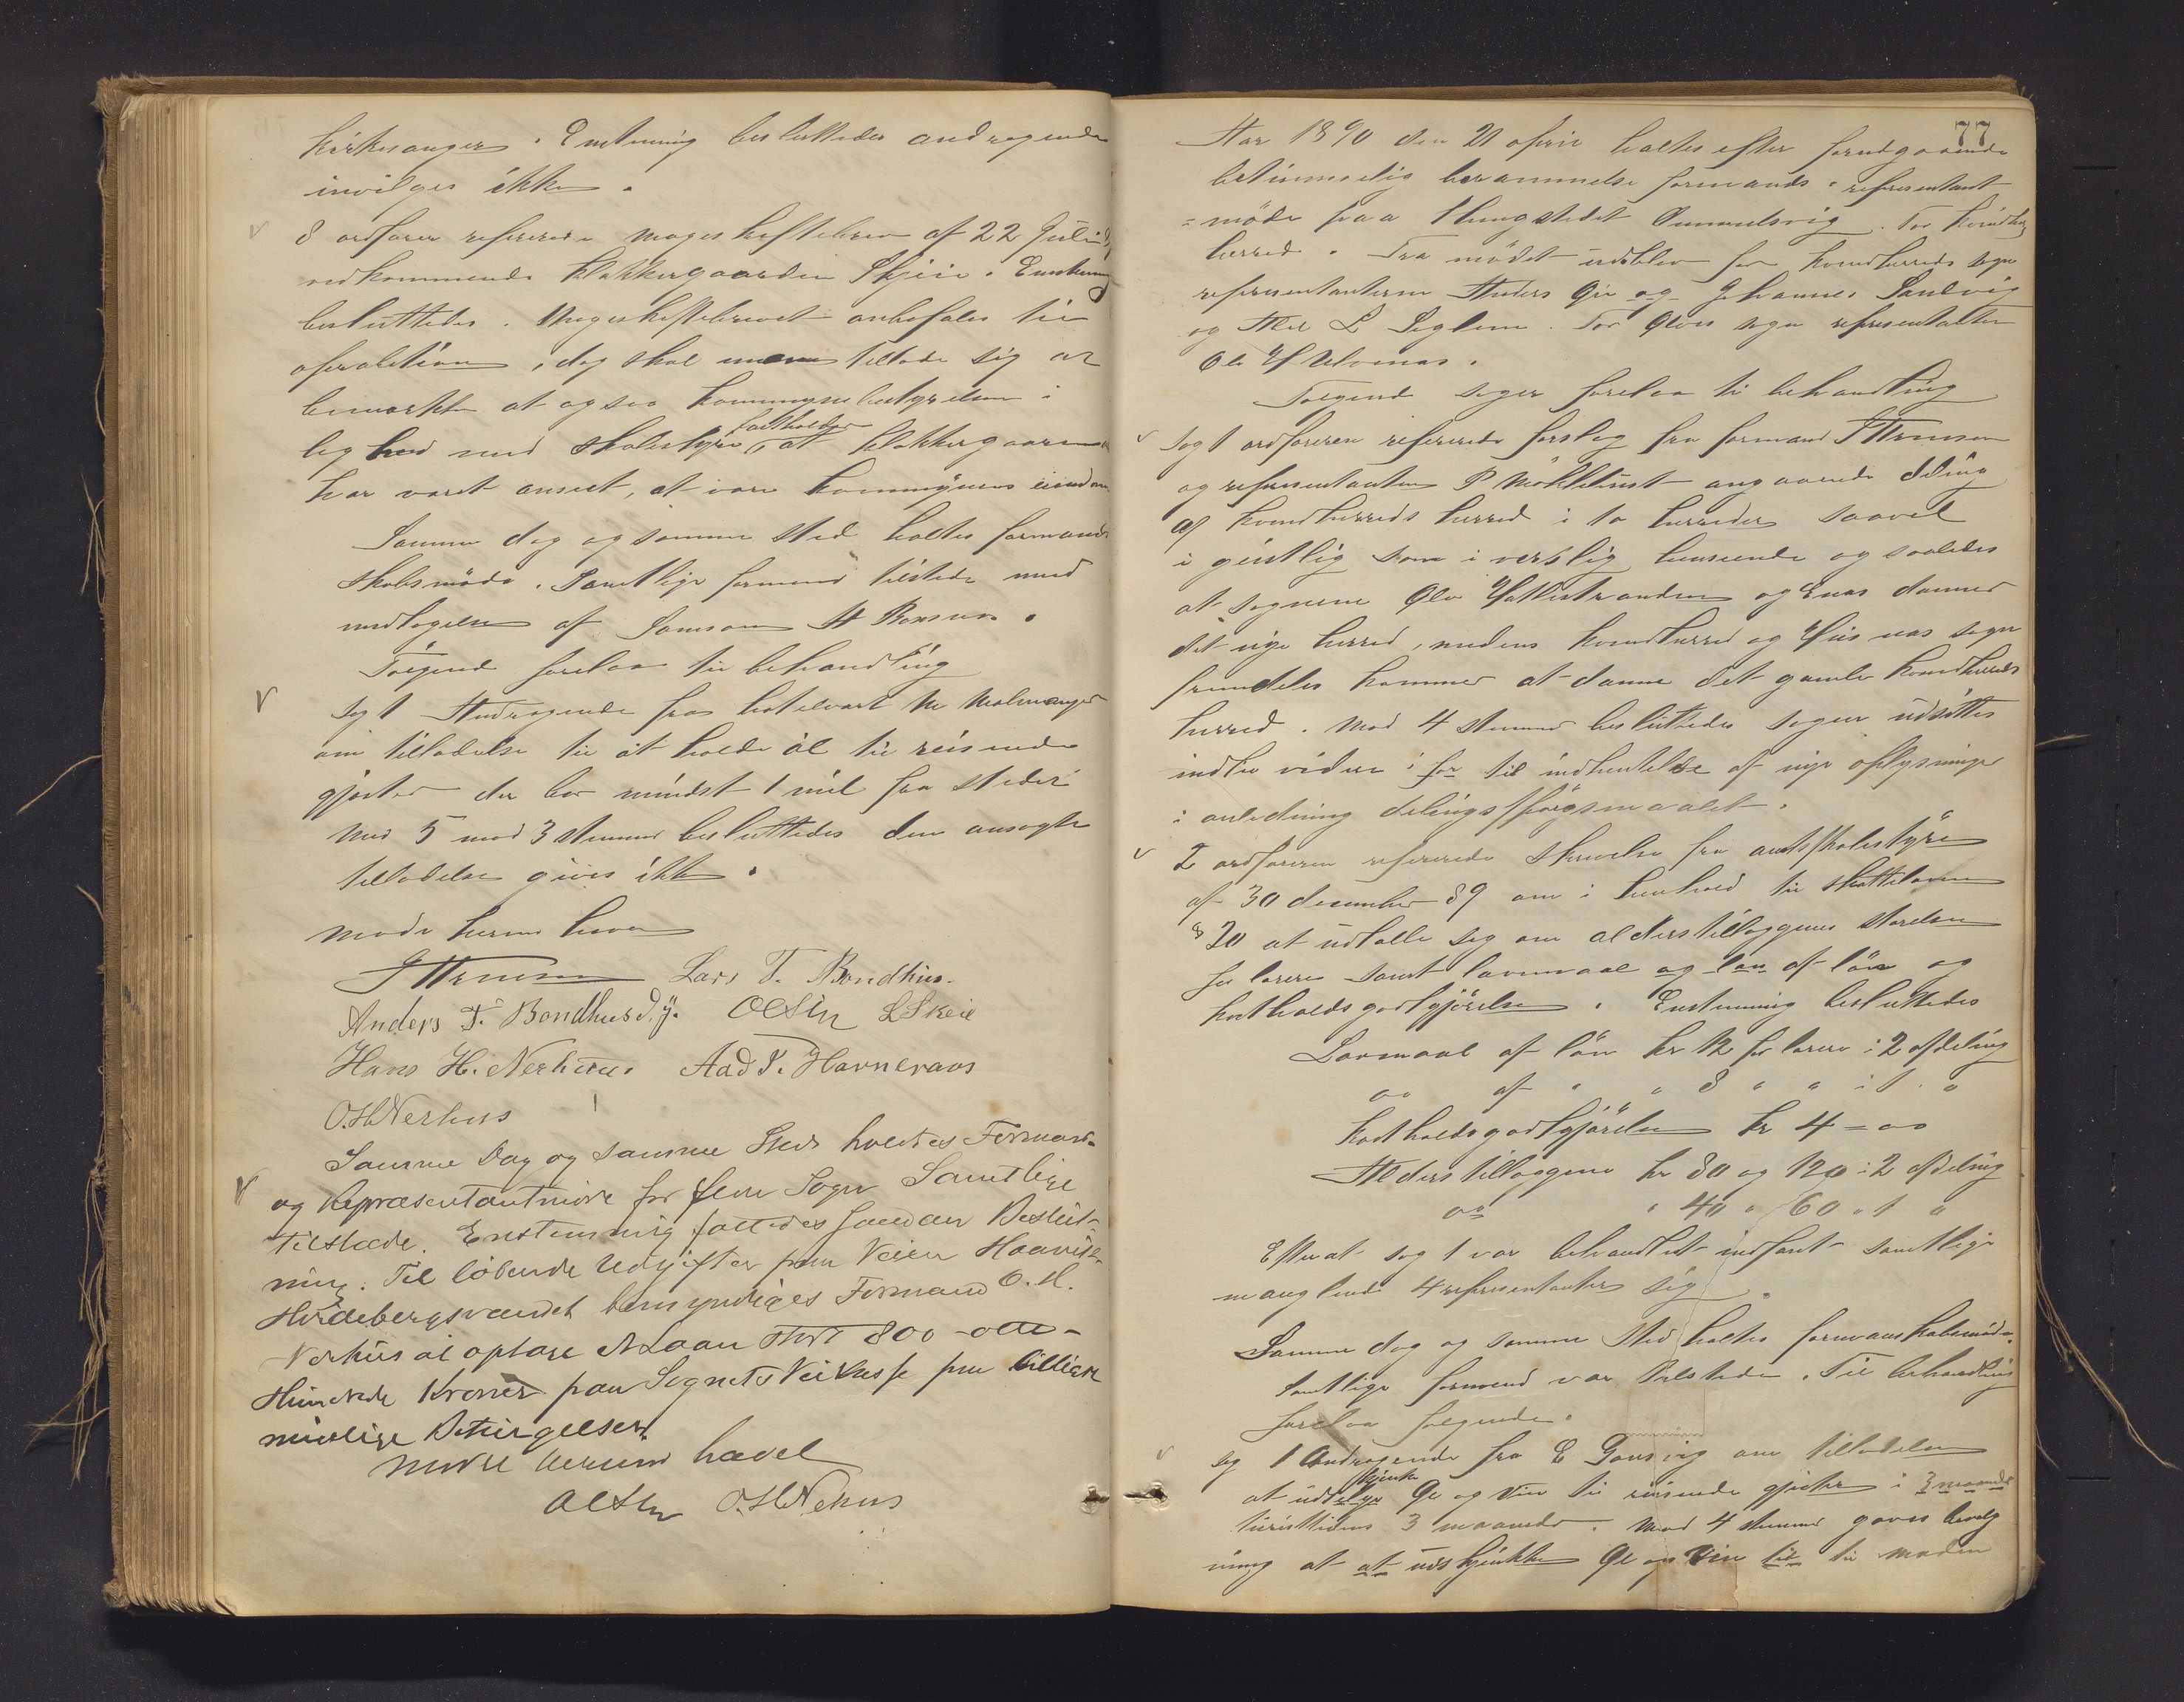 kirkesanger. Enstemmig besluttedes andragende
invilges ikke.
8 ordforer refererede mageskiftebrev af 22 Juli
vedkommende klokkergaarden Skjeie. Enstemmig
besluttedes. Mageskiftebrevet anbefales til
aprobation, dog skal man tillade sig at
bemærke at ogsaa kommunebestyrelsen i
lighed med skolestyre fastholder at klokkergaarden
har været anseet, at være kommunens eiendom
Samme dag og samme sted holtes formand
skabsmøde. Samtlige formend tilstede med
undtagelse af Samson
Følgende forelaa til behandling
Sag 1 Andragende fra hotelvært M Malmanger
om tilladelse til at holde øl til reisende
gjæster der bor mindst 1 mil fra stedet
Med 5 mod 3 stemmer besluttedes den ansøgte
tilladelse gives ikke.
møde herme hævet
Lars T. Bondhus.
Anders T. Bondhus d.y. L Skeie
Hans H. Nerhus. Aad P. Havneraas
O.H Nerhus
Samme Dag og samme Sted holdtes Formand-
og Repræsentantmøde for Sogn Samtlige
tilstæde. Enstemmig fattedes saadan Beslut-
ning. Til løbende Udgifter paa Veien Haavik-
Hordebergsvandet bemyndiges Formand O. H.
Nerhus at optage et Laan stort 800 - otte -
Hundrede Kroner paa Sognets Veikasse paa billigste
mulige Betingelser
Mødet dermed hævet
O.H Nerhus
77
Aar 1890 den 21 april holtes efter forudgaaende
betimmelig berammelse formands = representant
= møde paa thingstedet Ommelsvig. For Kvindher
herred. Fra mødet udeblev for Kvindherreds sogn
representanterne Anders Øie og Johannes Sandvig
og L Seglem. For Ølves sogn representanten
Ole H Ulvenes.
Følgend sager forelaa til behandling
Sag 1 ordføreren refererede forslag fra formand
og representanten P Møklebust angaaende deling
af Kvindherreds herred i to herreder saavel
i geistlig som i verslig henseende og saaledes
at sognene Ølve Hatlestranden og Enæs danner
det nye herred, medens Kvindherred og Husnæs sogne
fremdeles kommer at danne det gamle Kvindherreds
herred. Mod 4 stemmer besluttedes sagen udsættes
indtil videre i for til indhentelse af nye oplysninger
i anledning delingsspørgsmaalet.
2 ordføreren refererede skrivelse fra amtsskolestyre
af 30 desember 89 om i henhold til skolelovens
§ 20 at udtalle sig om alderstillæggenes størelse
for lærere samt lavmaal og løn af løn og
kostholdsgodtgjørelse. Enstemmig besluttedes
Lavmaal af løn kr 12 for lærere i 2 afdeling
do af " " 8 " " i 1 "
kostholdsgodtgjørelse kr 4 = 00
Alderstillæggene kr 80 og 120 i 2 afdeling
do " 40 " 60 " 1 "
Efterat sag 1 var behandlet indfant samtlige
manglende 4 representanter sig.
Samme dag og samme sted holtes formanskabsmøde.
Samtlige formend var tilstede. Til behandling
forelaa følgende.
Sag 1 Andragende fra E om tilladelse
at udskjenke Øl og Vin til reisende gjester i 3 maaneder
turisttidens 3 maaneder. Mod 4 stemmer gaves bevilg
ning at at udskjenkke Øl og Vin til til maden